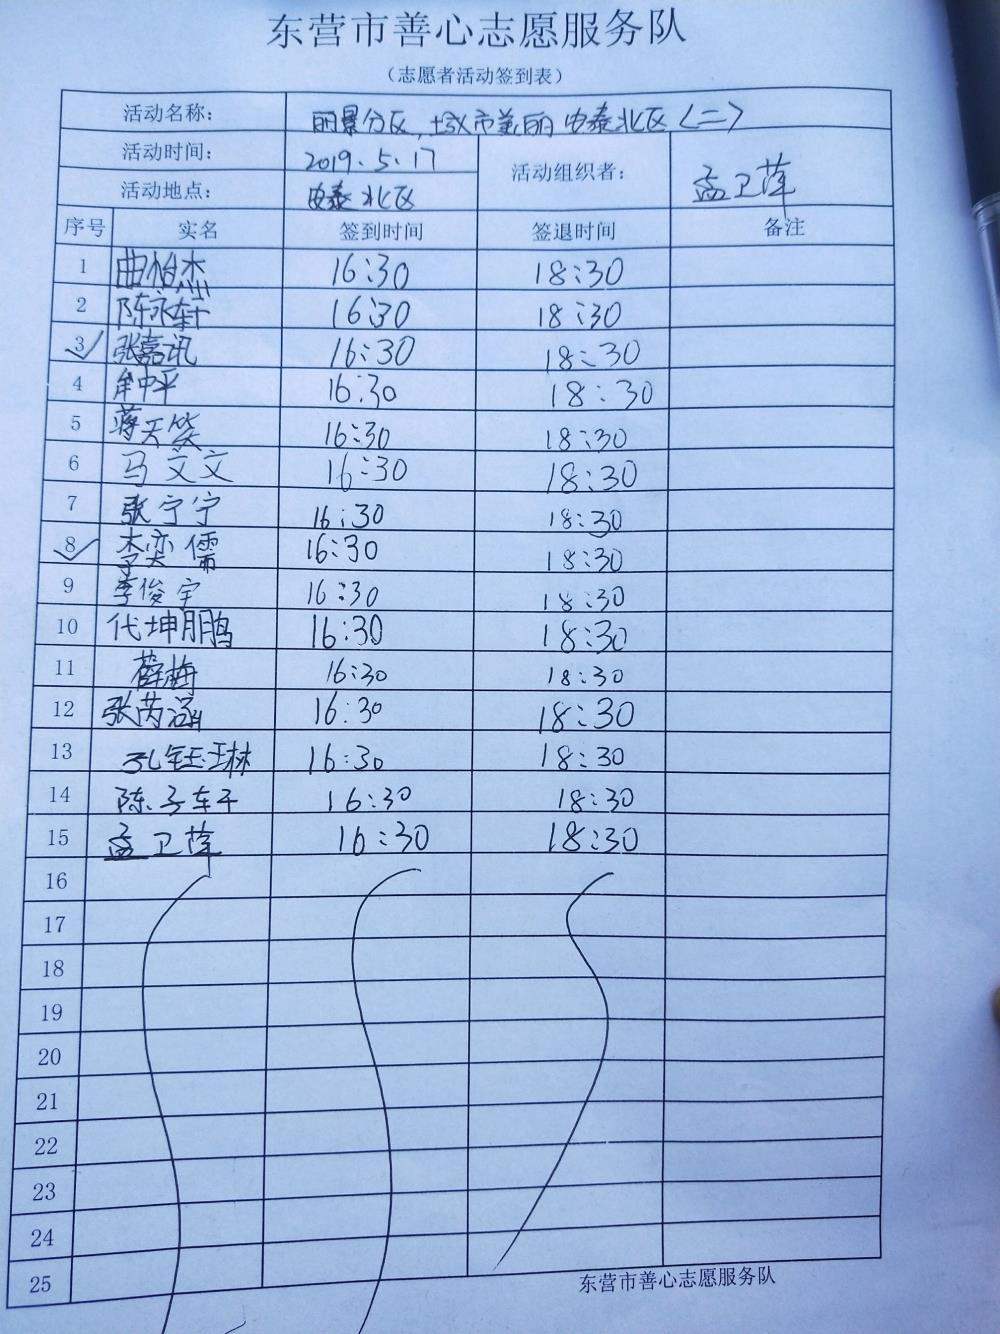 东营市善心志愿服务队
（志愿者活动签到表）
活动名称： 丽景分区,城市美丽 安泰北区（二）
活动时间： 2019.5.17 活动组织者： 孟卫萍
活动地点： 安泰北区
序号 实名 签到时间 签退时间 备注
1 曲怡杰 16:30 18:30
2 陈永轩 16:30 18:30
3 张嘉讯 16:30 18:30
4 牟中平 16:30 18:30
5 蒋天笑 16:30 18:30
6 马文文 16:30 18:30
7 张宁宁 16:30 18:30
8 李奕儒 16:30 18:30
9 李俊宇 16:30 18:30
10 代坤鹏 16:30 18:30
11 薛梅 16:30 18:30
12 张芮涵 16:30 18:30
13 孔钰琳 16:30 18:30
14 陈子轩 16:30 18:30
15 孟卫萍 16:30 18:30
16
17
18
19
20
21
22
23
24
25
东营市善心志愿服务队